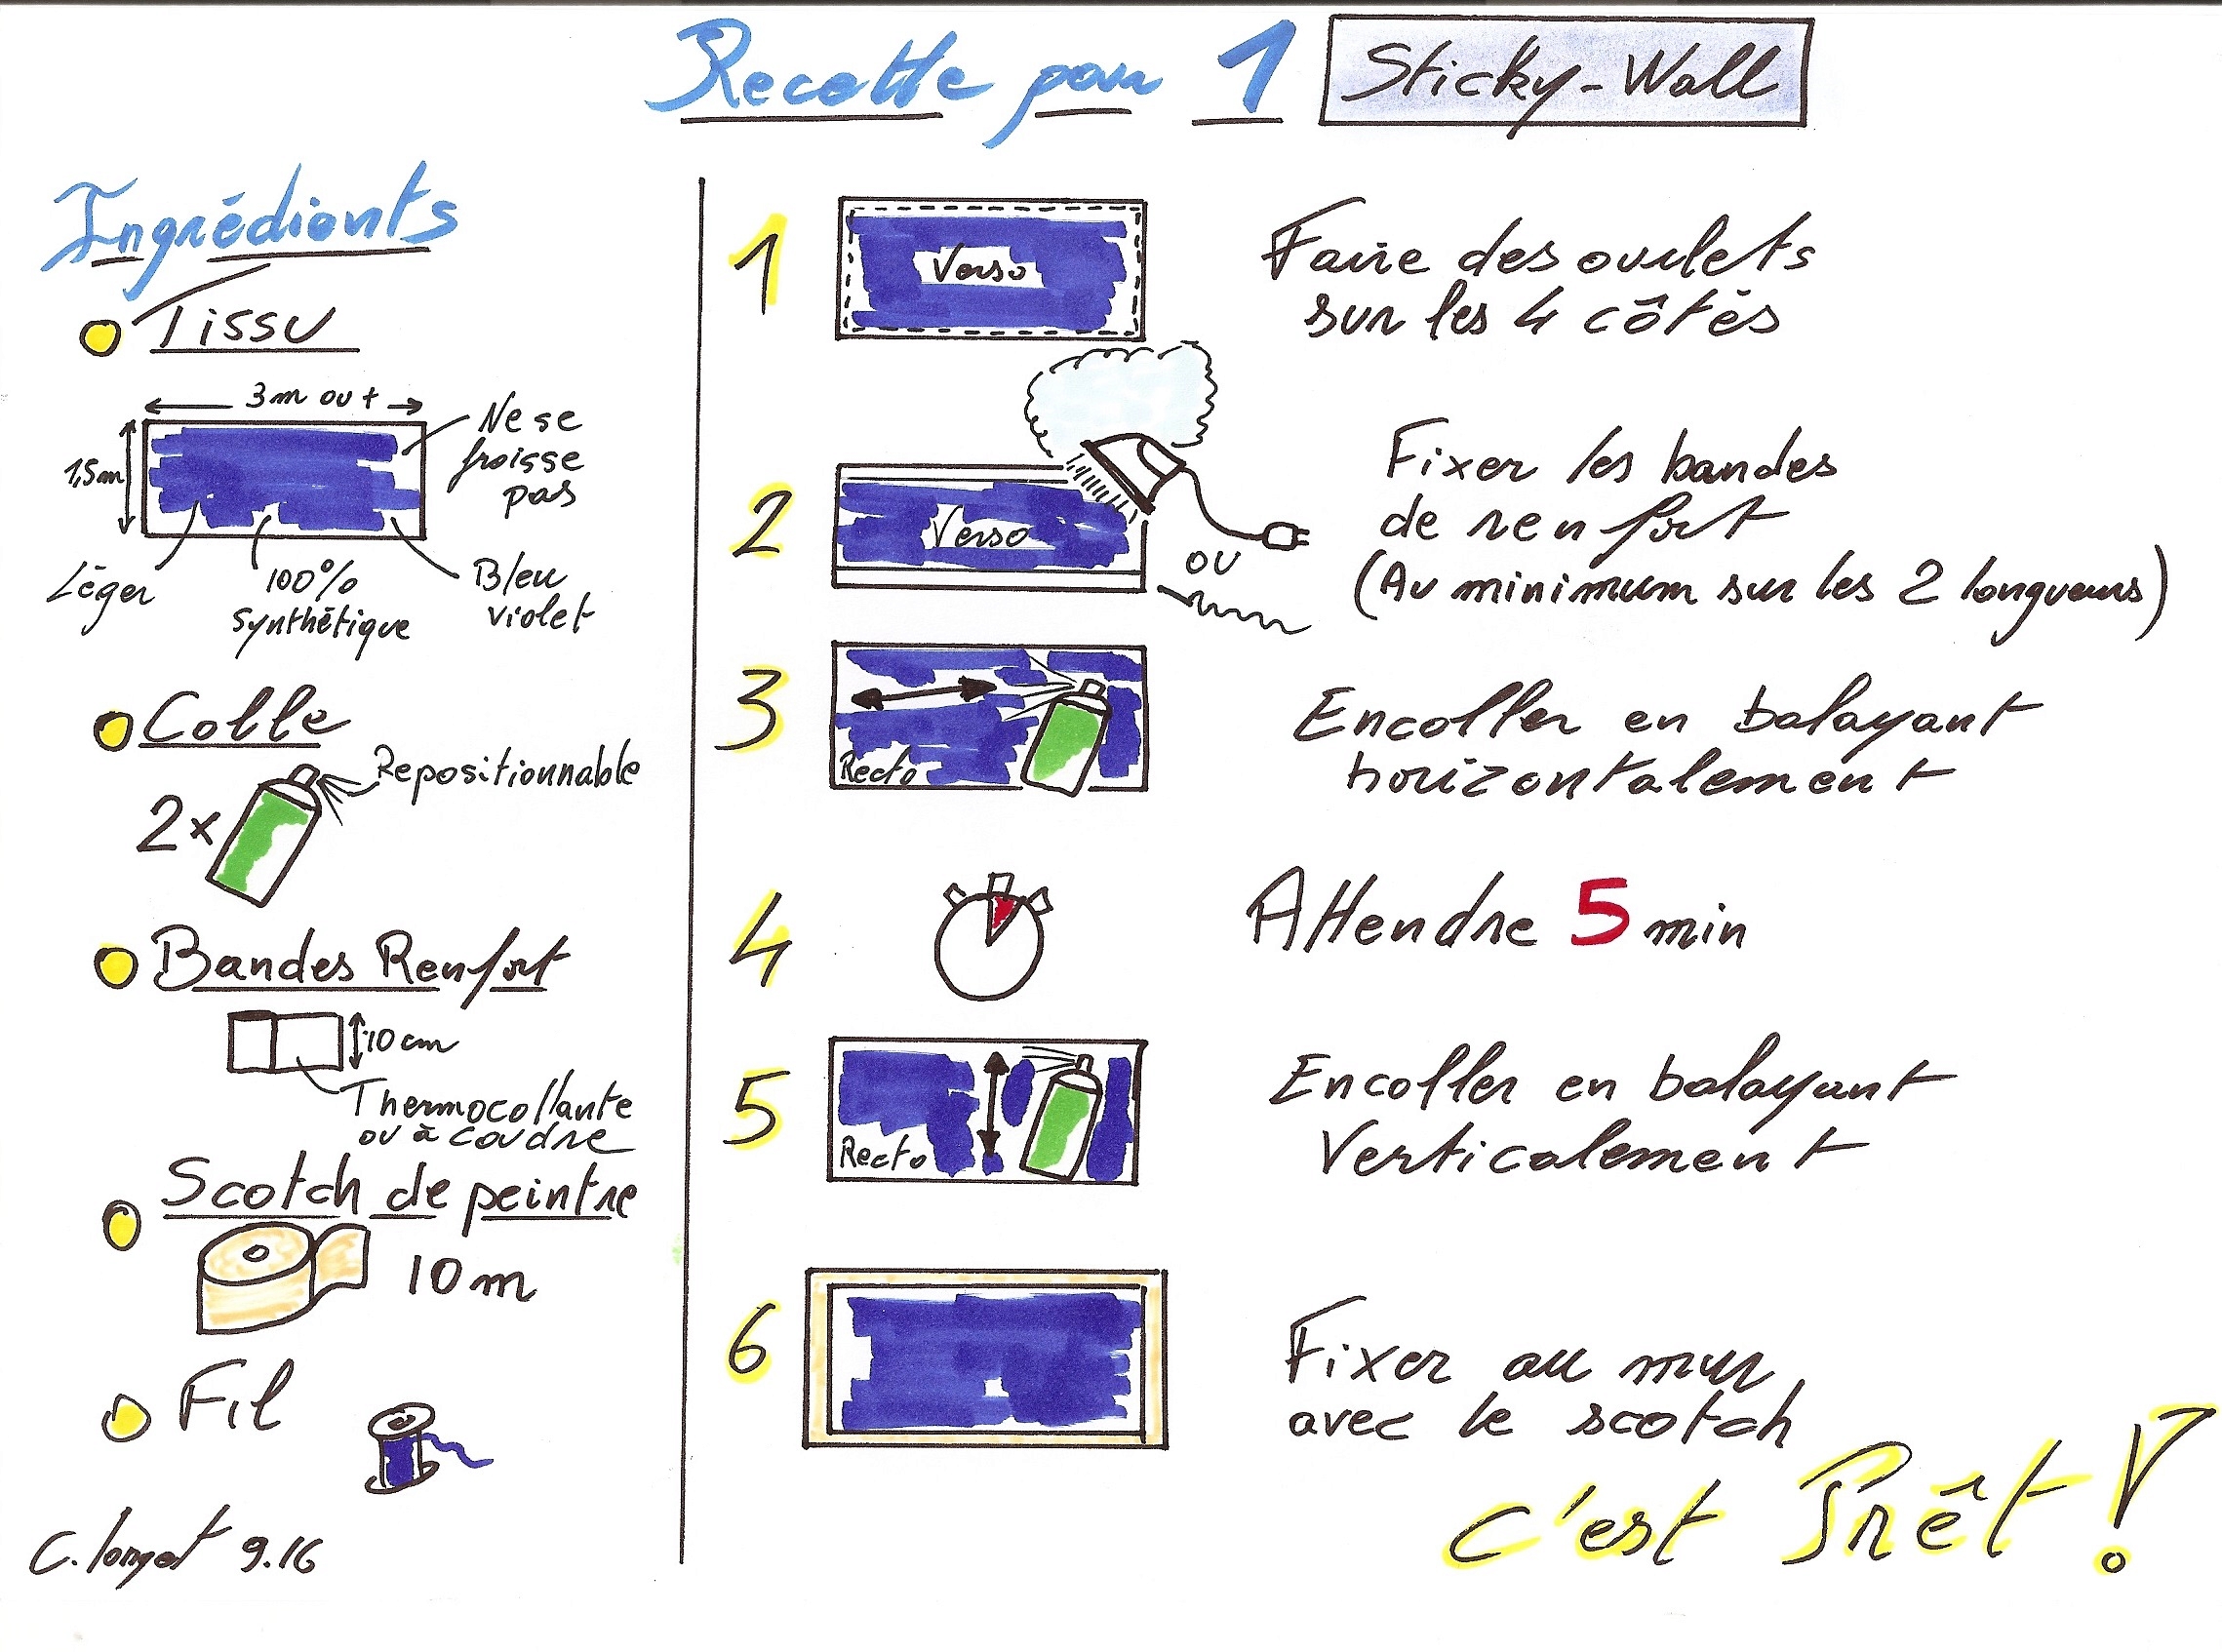 Recette pour 1 Sticky-Wall
Ingrédients
Tissu
3m ou +
1,5m
Ne se
froisse
pas
Léger
100%
synthétique
Bleu
violet
Colle
Repositionnable
2x
Bandes Renfort
10 cm
Thermocollante
ou à coudre
Scotch de peintre
10 m
Fil
C. 9.16
1
Verso
Faire des ourlets
sur les 4 côtés
2
Verso
ou
Fixer les bandes
de renfort
(Au minimum sur les 2 longueurs)
3
Recto
Encoller en balayant
horizontalement
4
Attendre 5 min
5
Recto
Encoller en balayant
Verticalement
6
Fixer au mur
avec le scotch
C'est Prêt !